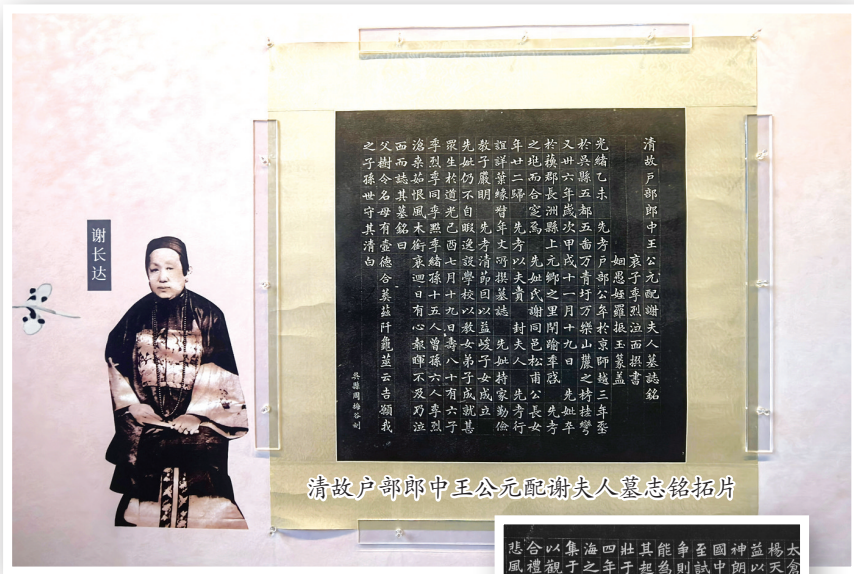 谢长达
清故戶部郎中王公元配謝夫人墓誌銘
哀子季烈泣血撰書
姻愚姪羅振玉篆蓋
光緒乙未 先考戶部公卒於京師越三年葬
於吳縣五都五啚万青圩万樂山麓之桂彎
又卅六年歲次甲戌十一月十九日 先妣卒
於郡長洲縣上元鄉之里閈踰季啓 先考
之兆而合窆焉 先妣氏謝同邑松甫公長女
年廿二歸 先考以夫貴 封夫人 先考行
誼詳葉緣督年丈所撰墓誌 先妣持家勤儉
教子嚴明 先考清節因以益峻子女成立
先妣仍不自暇逸設學校以教女弟子成就甚
眾生於道光己酉七月十九日壽八十有六子
季烈季同季點季緒孫十五人曾孫六人季烈
滄桑茹恨風木銜哀迴日有心報暉不及乃泣
血而誌其墓銘曰
父樹令名母有壼德合葬茲阡龜筮云吉願我
之子孫世守其清白
吳縣周梅谷刻
清故户部郎中王公元配谢夫人墓志铭拓片
太倉
楊天
益以
神朗
國中
至試
争則
能為
其起
壯于
四年
海之
集于
以觀
合禮
悲風